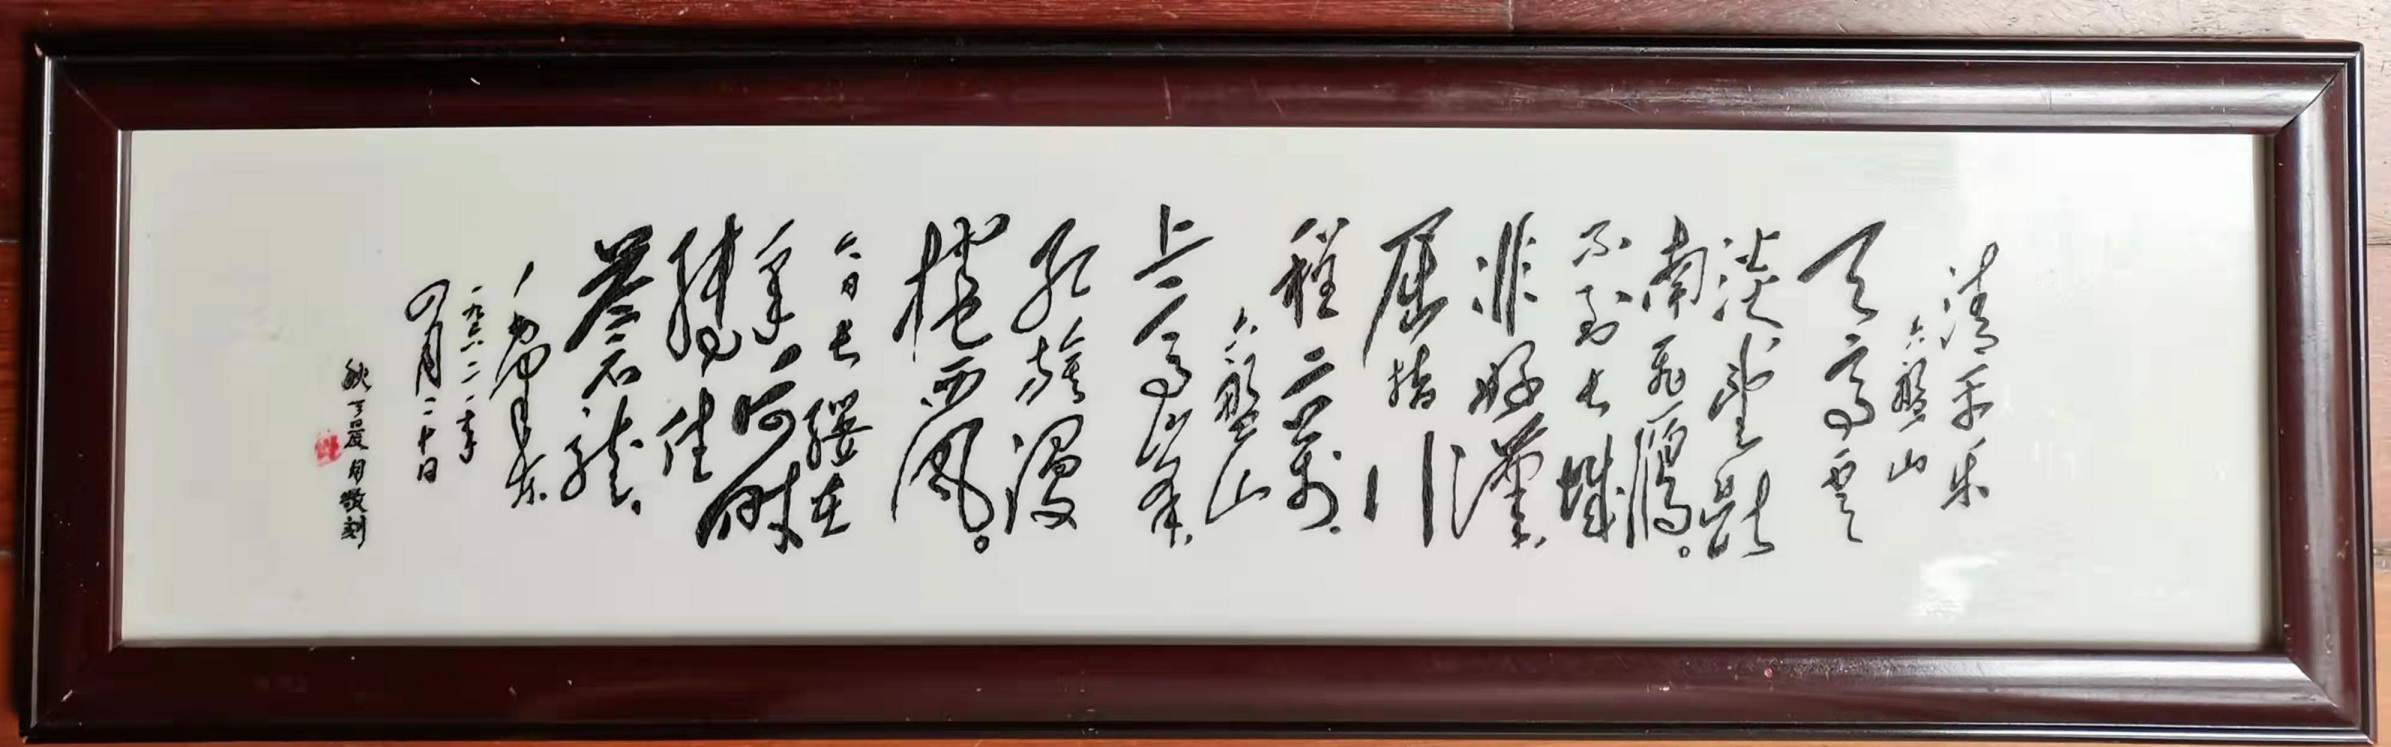 清平乐
六盘山
天高云
淡望断
南飞雁。
不到长城
非好漢,
屈指行
程二萬。
六盘山
上高峰,
红旗漫
捲西风。
今日长缨在
手,何时
缚住
苍龙。
毛泽东
一九六二年
四月二十日
夏月敬刻